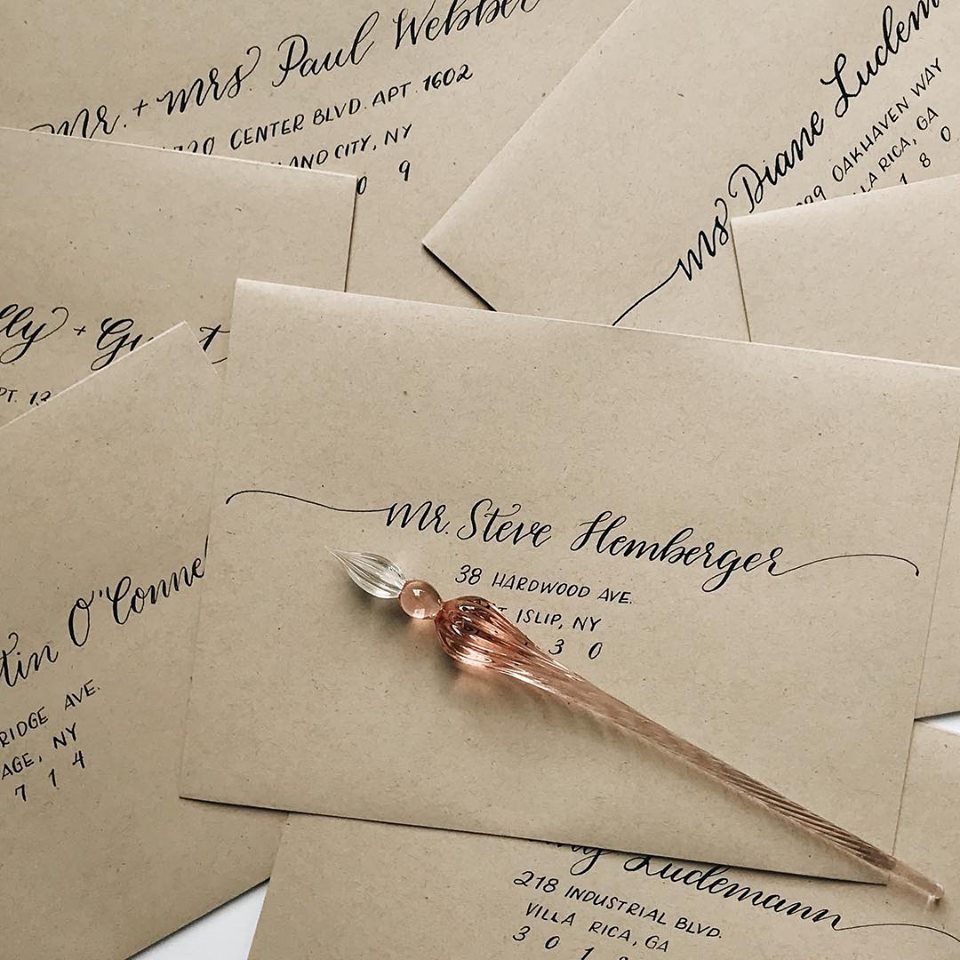 Mr. + Mrs. Paul Webber
CENTER BLVD. APT. 1602
CITY, NY
9
Ms Diane
OAKHAVEN WAY
RICA, GA
1 8 0
+
APT. 12
O'Conne
AVE.
NY
7 1 4
Mr. Steve Hemberger
38 HARDWOOD AVE.
ISLIP, NY
3 0
Ludemann
218 INDUSTRIAL BLVD.
VILLA RICA, GA
3 0 1 8